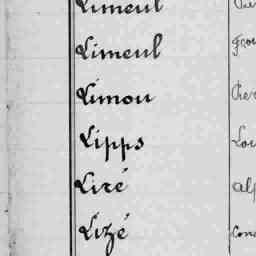 Limeul
Limeul
Limou
Lipps
Liré
Lizé